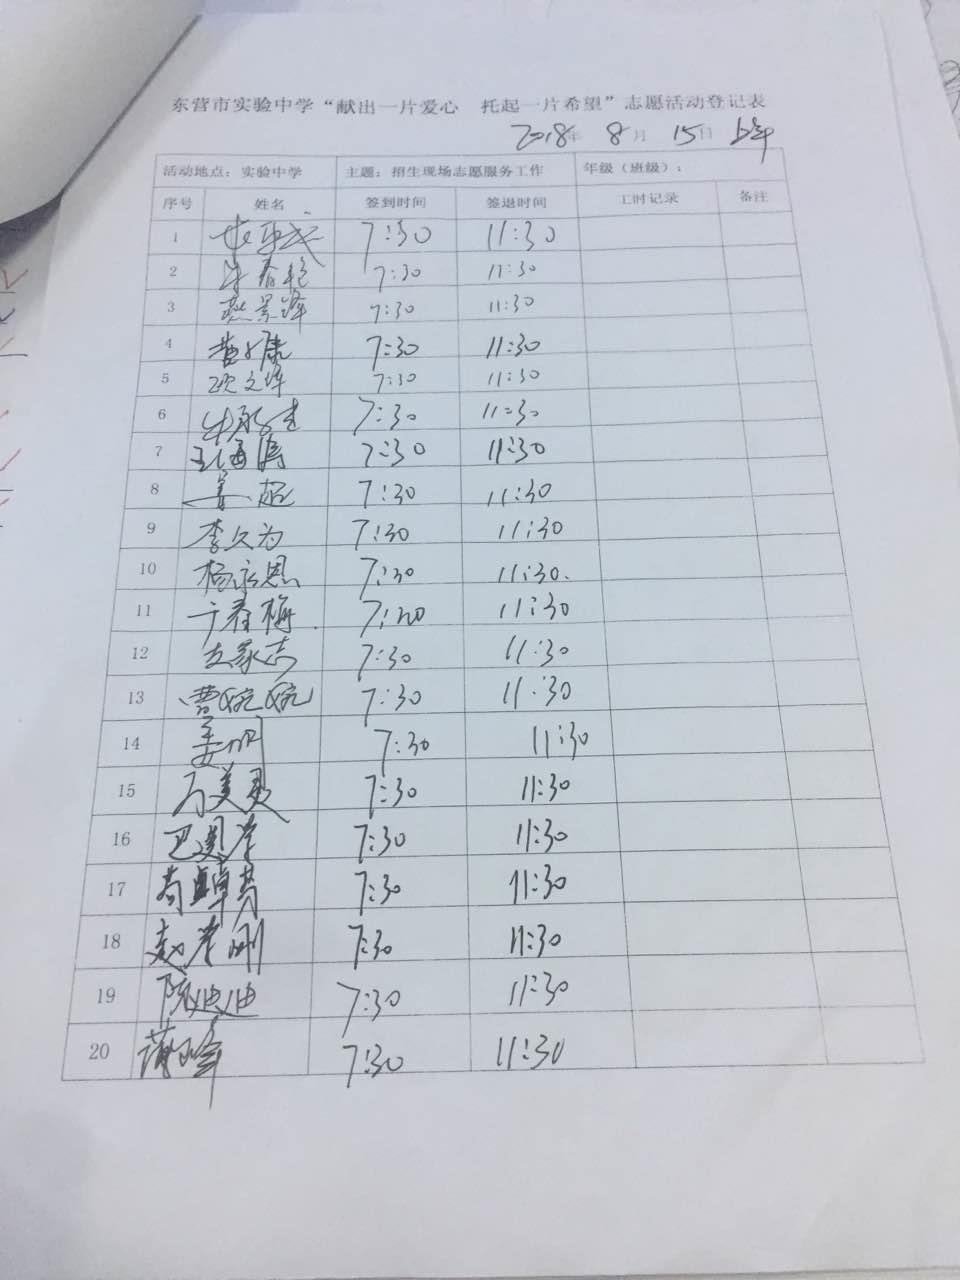 东营市实验中学“献出一片爱心 托起一片希望”志愿活动登记表
2018年 8月 15日 上午
活动地点：实验中学 主题：招生现场志愿服务工作 年级（班级）：
序号 姓名 签到时间 签退时间 工时记录 备注
1 7:30 11:30
2 7:30 11:30
3 燕景峰 7:30 11:30
4 7:30 11:30
5 7:30 11:30
6 7:30 11:30
7 王海涛 7:30 11:30
8 姜超 7:30 11:30
9 李久为 7:30 11:30
10 杨永恩 7:30 11:30.
11 于春梅 7:30 11:30
12 7:30 11:30
13 曹婉婉 7:30 11:30
14 姜明 7:30 11:30
15 万美灵 7:30 11:30
16 7:30 11:30
17 7:30 11:30
18 7:30 11:30
19 陈迪迪 7:30 11:30
20 7:30 11:30